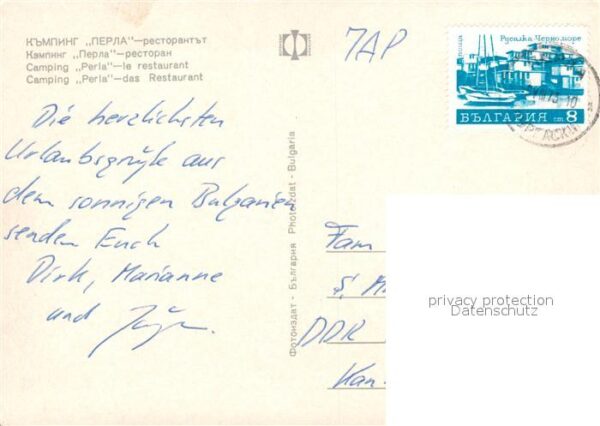 КЪМПИНГ „ПЕРЛА"—ресторантът
Кэмпинг „Перла"—ресторан
Camping „Perla"—le restaurant
Camping „Perla"—das Restaurant
Die herzlichsten
Urlaubsgrüße aus
dem sonnigen Bulgarien
senden Euch
Dirk, Marianne
und
Фотоиздат - България Photoizdat - Bulgaria
поща Русалка Черно море
БЪЛГАРИЯ ст. 8
Fam
DDR
privacy protection
Datenschutz